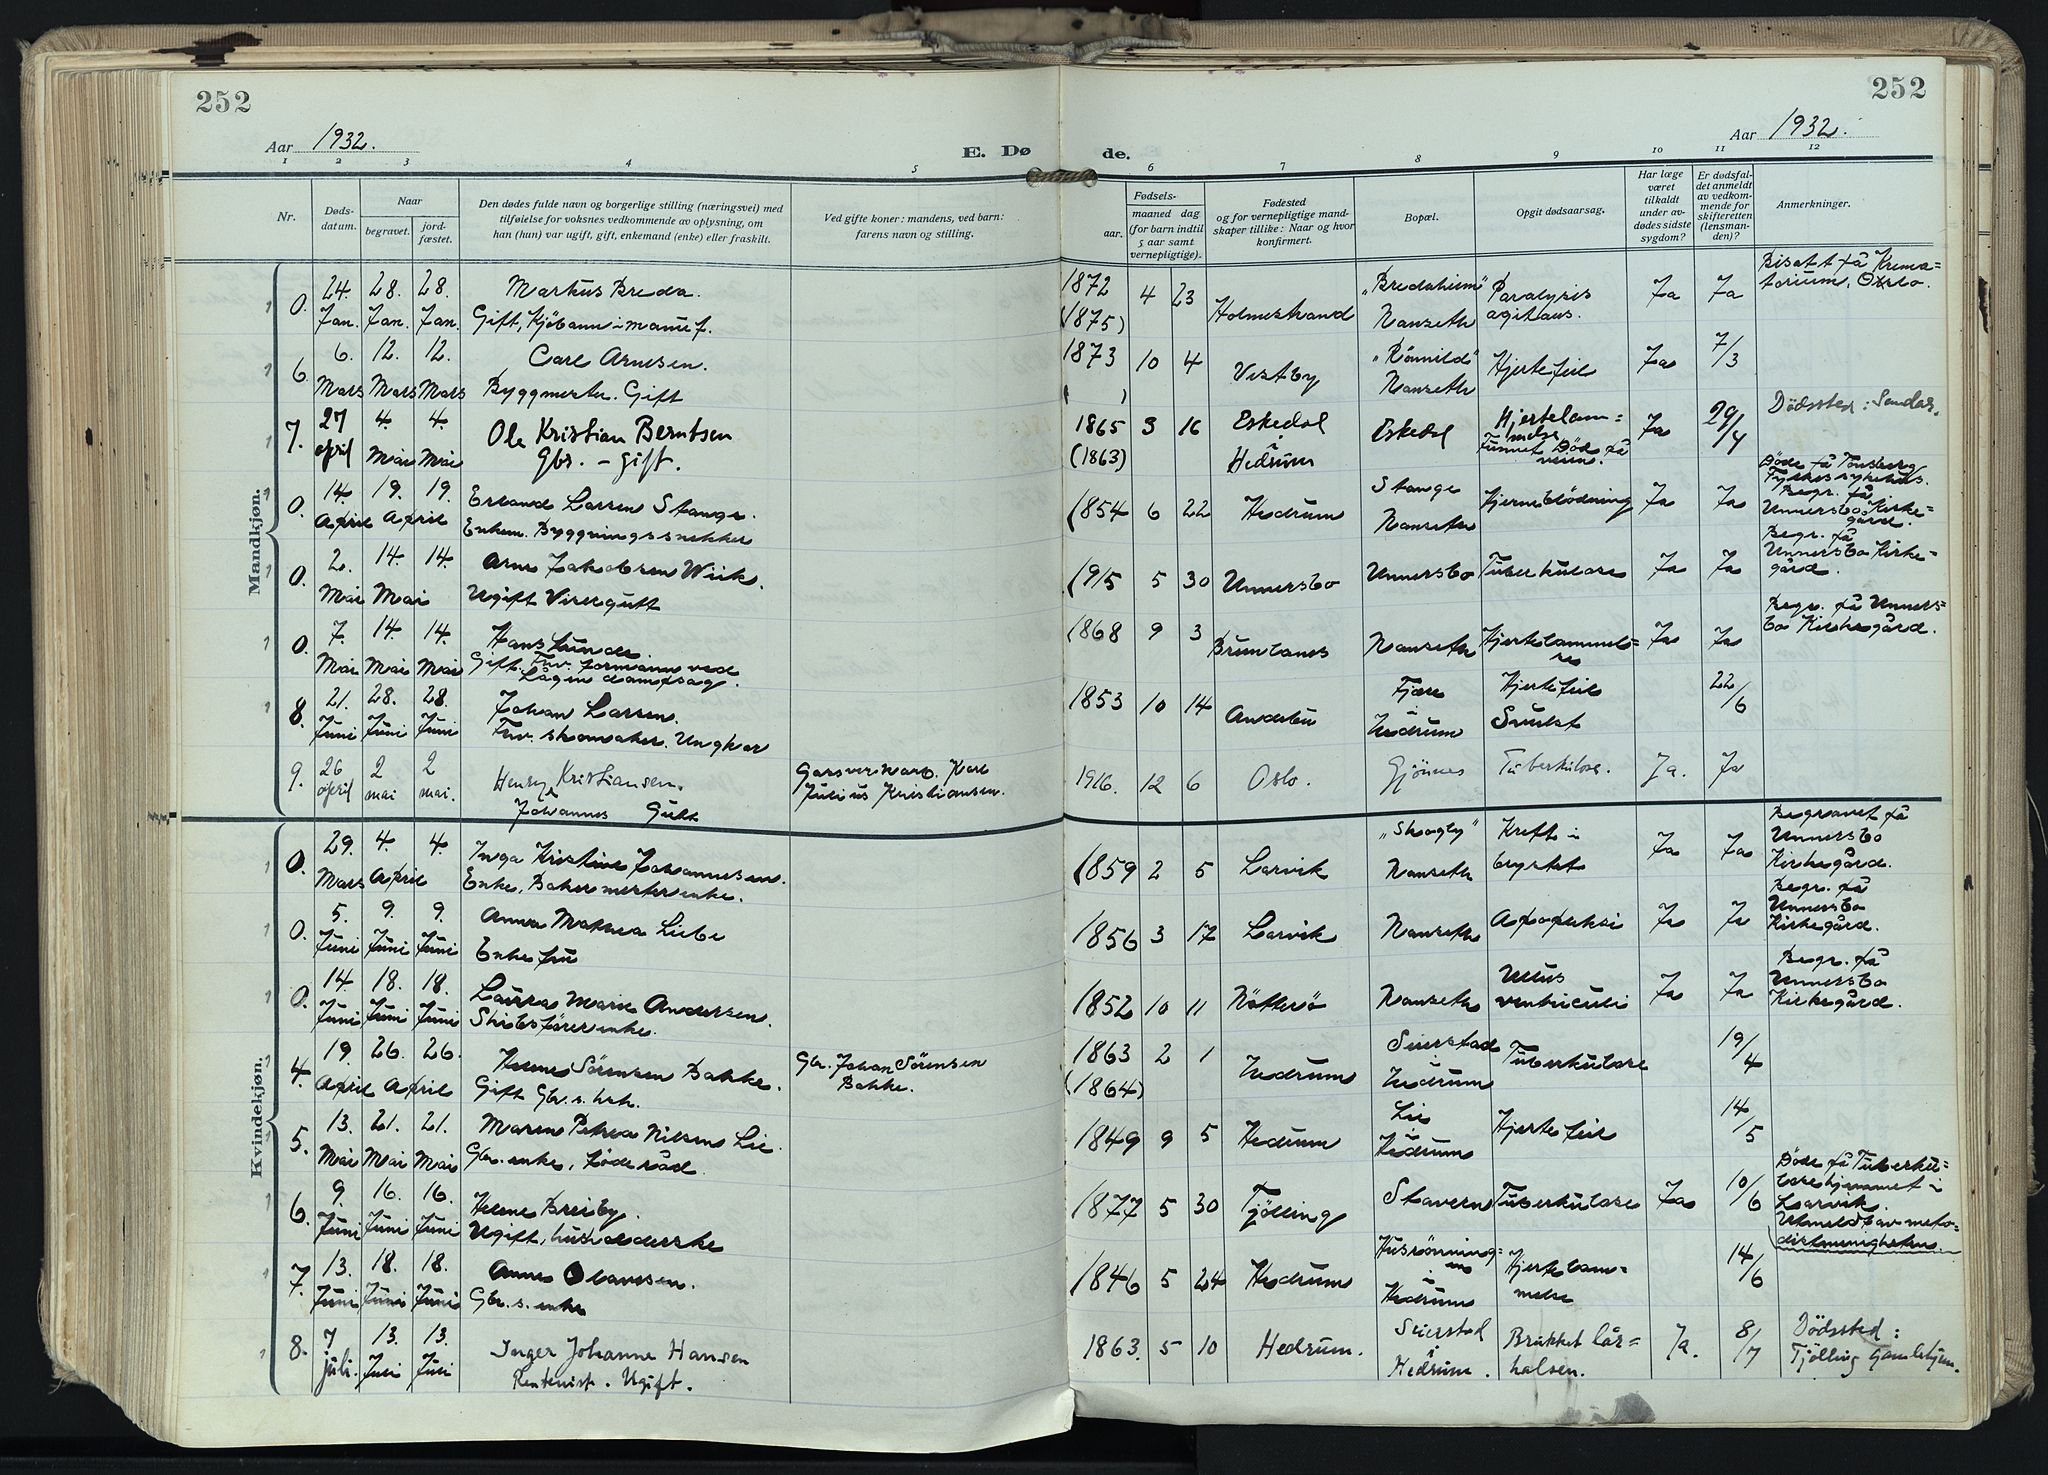 252
252
Aar 1932.
E. Dø de.
Aar 1932.
1 2 3 4 5 6 7 8 9 10 11 12
Nr.
Døds-
datum.
Naar
begravet.
jord-
fæstet.
Den dødes fulde navn og borgerlige stilling (næringsvei) med
tilføielse for voksnes vedkommende av oplysning, om
han (hun) var ugift, gift, enkemand (enke) eller fraskilt.
Ved gifte koner: mandens, ved barn:
farens navn og stilling.
Fødsels-
aar.
maaned dag
(for barn indtil
5 aar samt
vernepligtige).
Fødested
og for vernepligtige mand-
skaper tillike: Naar og hvor
konfirmert.
Bopæl.
Opgit dødsaarsag.
Har læge
været
tilkaldt
under av-
dødes sidste
sygdom?
Er dødsfal-
det anmeldt
av vedkom-
mende for
skifteretten
(lensman-
den)?
Anmerkninger.
Mandkjøn.
0. 24. Jan. 28. Jan. 28. Jan.
Markus Breda.
Gift, Kjøbmann i manuf.
1872 (1875) 4 23 Holmestrand
"Bredaheim" Nanseth
Paralysis agitans.
Ja Ja
Bisatt på Krema=
torium, Oslo.
6. 6. Mars 12. Mars 12. Mars
Carl Arnesen.
Byggmester. Gift
1873 ( ) 10 4 Vestby
Nanseth
Hjertefeil
Ja 7/3
7. 27 april 4. Mai 4. Mai
Ole Kristian Berntsen
Gbr. - gift.
1865 (1863) 3 16 Eskedal i Hedrum
Eskedal
Hjertelam=
melse
Funnet Død på
veien.
Ja 29/4
Dødssted: Sandar.
0. 14. April 19. April 19.
Erland Larsen Stange.
Enkem. Byggningssnekker
1854 6 22 Hedrum
Stange Nanseth
Hjerneblødning
Ja Ja
Døde på Tønsberg
Fylkessykehus.
Begr. på
Unnersbo Kirke=
gård.
0. 2. Mai 14. Mai 14.
Arne Jakobsen Wiik.
Ugift Visergutt
1915 5 30 Unnersbo
Unnersbo
Tuberkulose
Ja Ja
Begr. på
Unnersbo Kirke=
gård.
0. 7. Mai 14. Mai 14. Mai
Hans Lunde.
Gift. Fhv. formann ved
Lågen dampsag.
1868 9 3 Brunlanes
Nanseth
Hjertelammel=
se
Ja Ja
Begr. på Unners=
bo Kirkegård.
8. 21. Juni 28. Juni 28. Juni
Johan Larsen.
Fhv. skomaker. Ungkar
1853 10 14 Andebu
Fjære Hedrum
Hjertefeil
22/6
9. 26 april 2 mai 2 mai.
Henry Kristiansen.
Johannes Gutt
Julius Kristiansen.
1916. 12 6 Oslo.
Gjønnes
Tuberkulose.
Ja. Ja
Kvindekjøn.
0. 29. Mars 4. April 4.
Inga Kristine Johannesen.
Enke, Bakermesterenke.
1859 2 5 Larvik
"Skogly" Nanseth
Kreft i
brystet
Ja Ja
Begravet på
Unnersbo
Kirkegård.
0. 5. Juni 9. Juni 9. Juni
Anna Mathea Liebe
Enkefru
1856 3 17 Larvik
Nanseth
Apopleksi
Ja Ja
Begr. på
Unnersbo
Kirkegård.
0. 14 Juni 18. Juni 18. Juni
Laura Marie Andersen.
Skibsførerenke.
1852 10 11 Nøtterø
Nanseth
Ulcus
ventriculi
Ja Ja
Begr. på
Unnersbo
Kirkegård.
4. 19. April 26. April 26.
Helene Sørensen Bakke.
Gift Gbr.s. hstr.
Gbr. Johan Sørensen
Bakke.
1863 (1864) 2 1 Hedrum
Seierstad i Hedrum
Tuberkulose
19/4
5. 13. Mai 21. Mai 21. Mai
Maren Petrea Nilsen Lie.
Gbr. enke, føderåd.
1849 9 5 Hedrum
Lie Hedrum
Hjertefeil
14/5
6. 9 Juni 16. Juni 16. Juni
Helene Breiby.
Ugift, husholderske
1877 5 30 Tjølling
Stavern
Tuberkulose
Ja 10/6
Døde på Tuberku=
losehjemmet i
Larvik.
Utmeldt av meto-
distmenigheten.
7. 13. Juni 18. Juni 18. Juni
Anne Olavesen.
Gbr.s. enke
1846 5 24 Hedrum
Husrønning=
en i Hedrum
Hjertelam=
melse
14/6
8. 7 juli. 13. Juli 13. Juli
Inger Johanne Hansen
Rentenist. Ugift.
1863. 5 10 Hedrum.
Seierstad i Hedrum.
Brukket lår=
halsen.
Ja. 8/7
Dødssted:
Tjølling Gamlehjem.